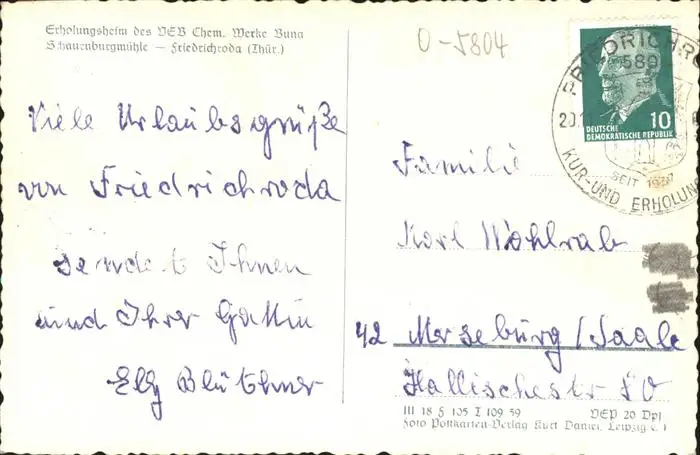 Erholungsheim des VEB Chem. Werke Buna
Schauenburgmühle — Friedrichroda (Thür.)
O-5804
Viele Urlaubsgrüße
von Friedrichroda
sendet Ihnen
und Ihrer Gattin
Elly Blüthner
FRIEDRICHRO
580
20.1
KUR- UND ERHOLUN
SEIT
10
DEUTSCHE
DEMOKRATISCHE REPUBLIK
Familie
Karl Wohlrab
42 Merseburg/Saale
Hallischestr 80
III 18 § 105 I 109 59 VEP 20 Dpf
Foto Postkarten-Verlag Kurt Daniel, Leipzig C 1